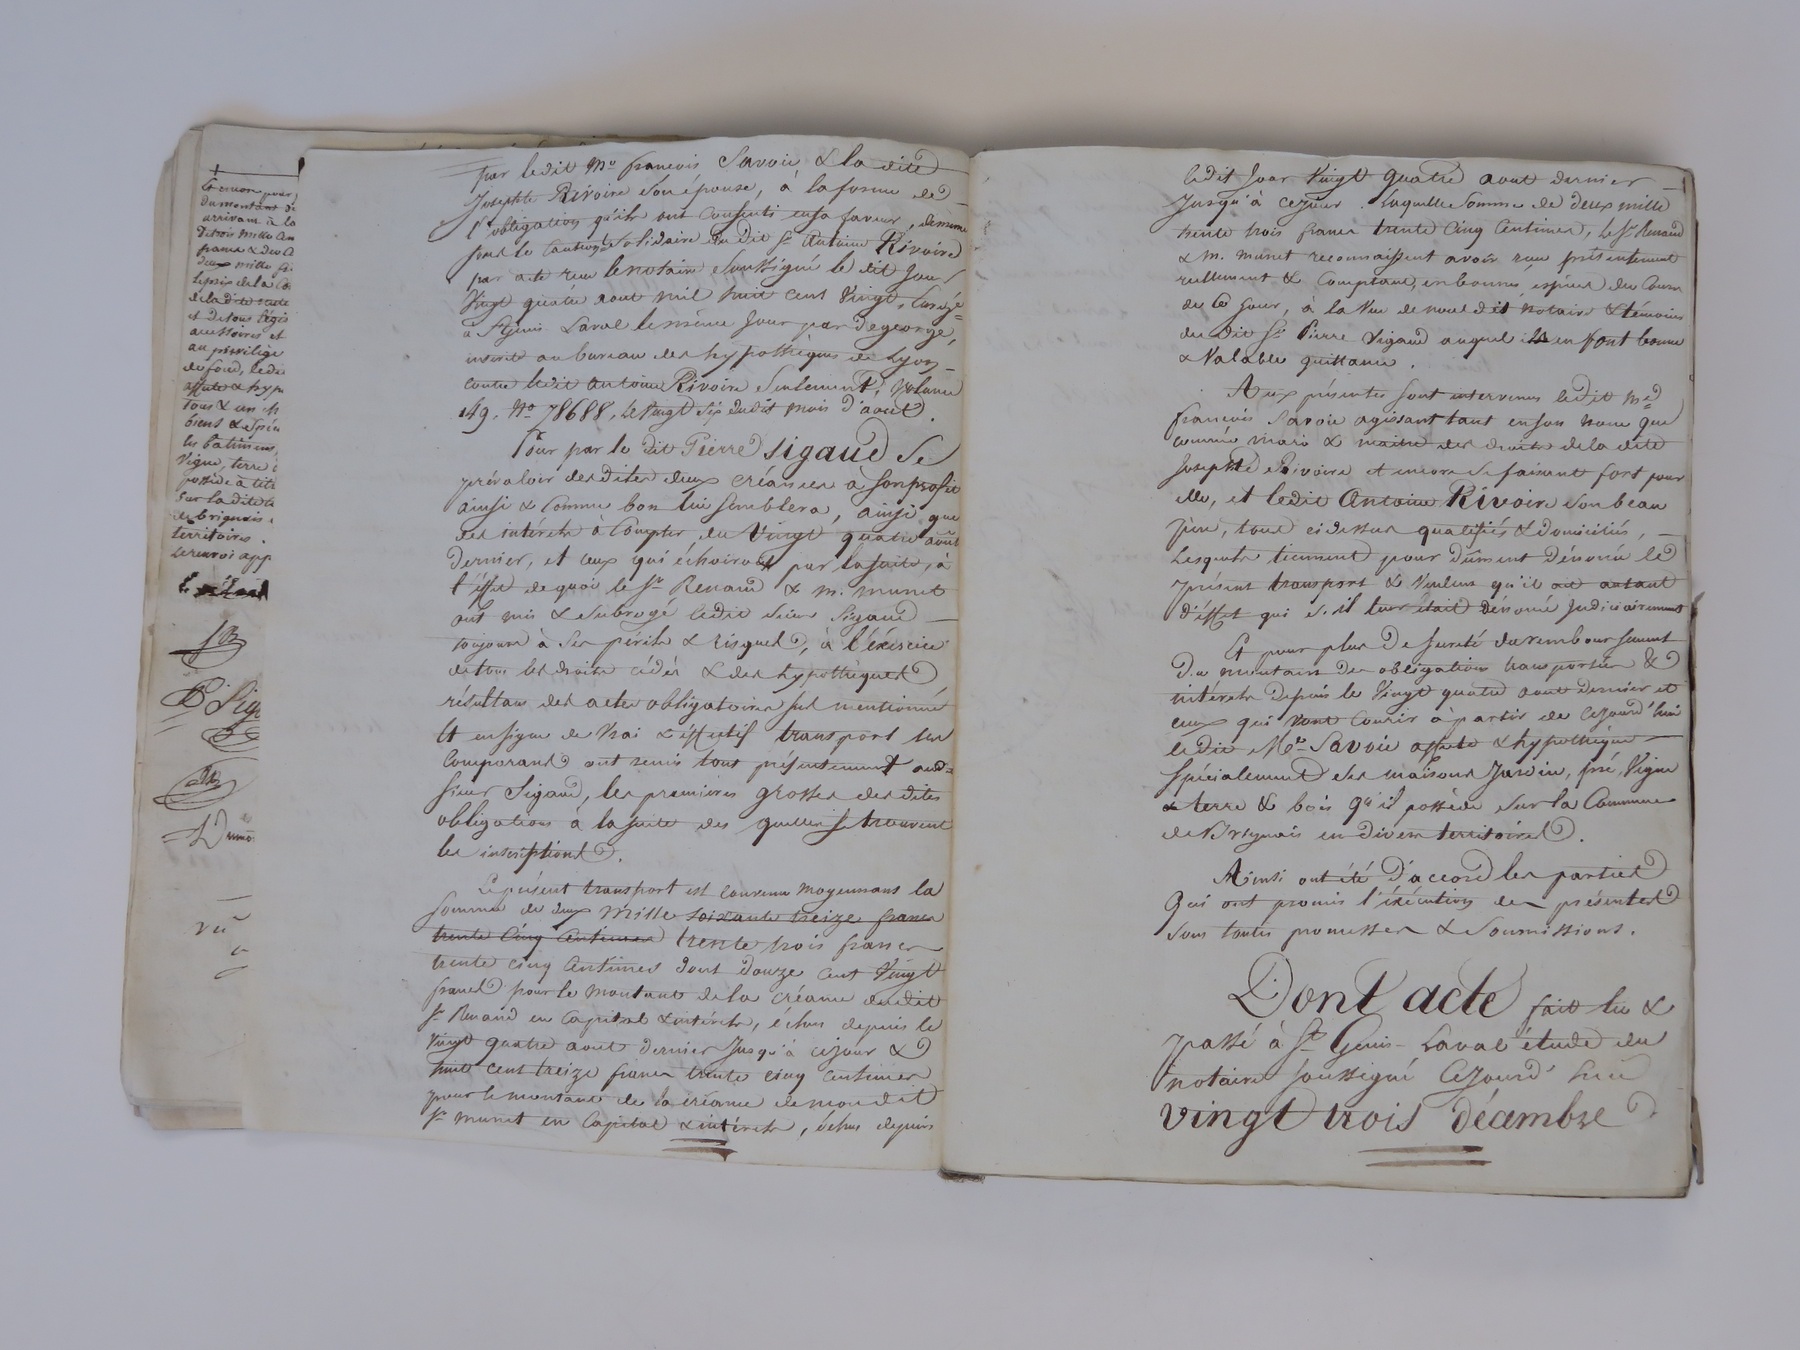 et encore pour
du montant de
arrivant à la
de trois mille
francs & deux
deux mille
le prix de la
de la dite
et de tous
accessoires et
au privilège
de fond, ledit
affecte & hyp
tous & un
biens & spé
les batimens,
vigne, terre
possède à titre
sur la dite
de brignais
territoires.
le renvoi app
P. Sig
vu
par ledit Md. françois Savoie & la dite
Josephte Rivoire son épouse, à la forme de
l'obligation qu'ils ont consenti en sa faveur,
sous le cautionnt solidaire du dit Sr. Antoine Rivoire
par acte reçu le notaire soussigné le dit jour
vingt quatre aout mil huit cent vingt, enreg=
à St. Genis Laval le même jour par Degeorge,
inscrit au bureau des hypothèques de Lyon
contre ledit Antoine Rivoire seulement, volume
149. No. 78688, le vingt six dudit mois d'aout.
Pour par le dit Pierre Sigaud se
prévaloir des dites deux créances à son profit
ainsi & comme bon lui semblera, ainsi que
des intérets à compter du vingt quatre aout
dernier, et ceux qui échoiront par la suite, à
l'effet de quoi le Sr. Renaud & m. munet
ont mis & subrogé ledit sieur Sigaud
toujours à ses périls & risques, à l'exercice
de tous les droits cédés & des hypothèques
résultans des actes obligatoires sus mentionnés
Et en signe de vrai & effectif transport les
comparans ont remis tout présentement aud=
sieur Sigaud, les premières grosses des dites
obligations à la suite des quelles se trouvent
les inscriptions.
Le présent transport est convenu moyennant la
somme de deux mille soixante treize francs
trente cinq centimes trente trois francs
trente cinq centimes dont douze cent vingt
francs pour le montant de la créance dudit
Sr. Renaud en capital & intérets, échus depuis le
vingt quatre aout dernier jusqu'à ce jour &
huit cent treize francs trente cinq centimes
pour le montant de la créance de mondit
Sr. munet en capital & intérets, échus depuis
ledit jour vingt quatre aout dernier
jusqu'à ce jour. laquelle somme de deux mille
trente trois francs trente cinq centimes, le Sr. Renaud
& m. munet reconnaissent avoir reçu présentement
réellement & comptant, en bonnes espèces du cours
de ce jour, à la vue de nous dit notaire & témoins
du dit Sr. Pierre Sigaud auquel ils en font bonne
& valable quittance.
Aux présentes sont intervenus ledit Md
françois Savoie agissant tant en son nom que
comme mari & maitre des droits de la dite
Josephte Rivoire et encore se faisant fort pour
elle, et ledit Antoine Rivoire son beau
père, tous ci dessus qualifiés & domiciliés,
Lesquels tiennent pour dûment dénoncé le
présent transport & veulent qu'il ait autant
d'effet que s'il leur était dénoncé judiciairement
Et pour plus de sureté du remboursement
du montant des obligations transportées &
intérets depuis le vingt quatre aout dernier et
ceux qui vont courir à partir de cejourd'hui
ledit Md. Savoie affecte & hypothèque
spécialement ses maisons jardin, pré, vigne
& terre & bois qu'il possède sur la commune
de Brignais en divers territoires.
Ainsi ont été d'accord les parties
qui ont promis l'exécution des présentes
sous toutes promesses & soumissions.
Dont acte fait lu &
passé à St. Genis-Laval étude du
notaire soussigné cejourd'hui
vingt trois décembre